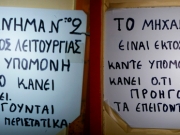 ΝΗΜΑ Νο2
ΟΣ ΛΕΙΤΟΥΡΓΙΑΣ
ΥΠΟΜΟΝΗ
Ο ΚΑΝΕΙ
ΕΙ.
ΓΟΥΝΤΑΙ
ΠΕΡΙΣΤΑΤΙΚΑ
ΤΟ ΜΗΧΑΝ
ΕΙΝΑΙ ΕΚΤΟΣ
ΚΑΝΤΕ ΥΠΟΜ
ΚΑΝΕΙ Ο.ΤΙ
ΠΡΟΗΓΟ
ΤΑ ΕΠΕΙΓΟΝΤ